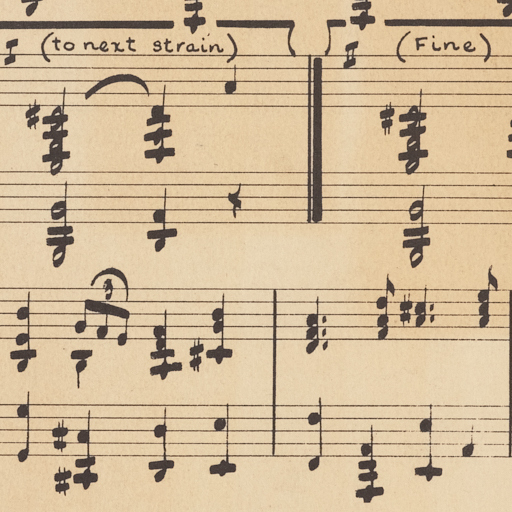 I (to next strain) I (Fine)
3